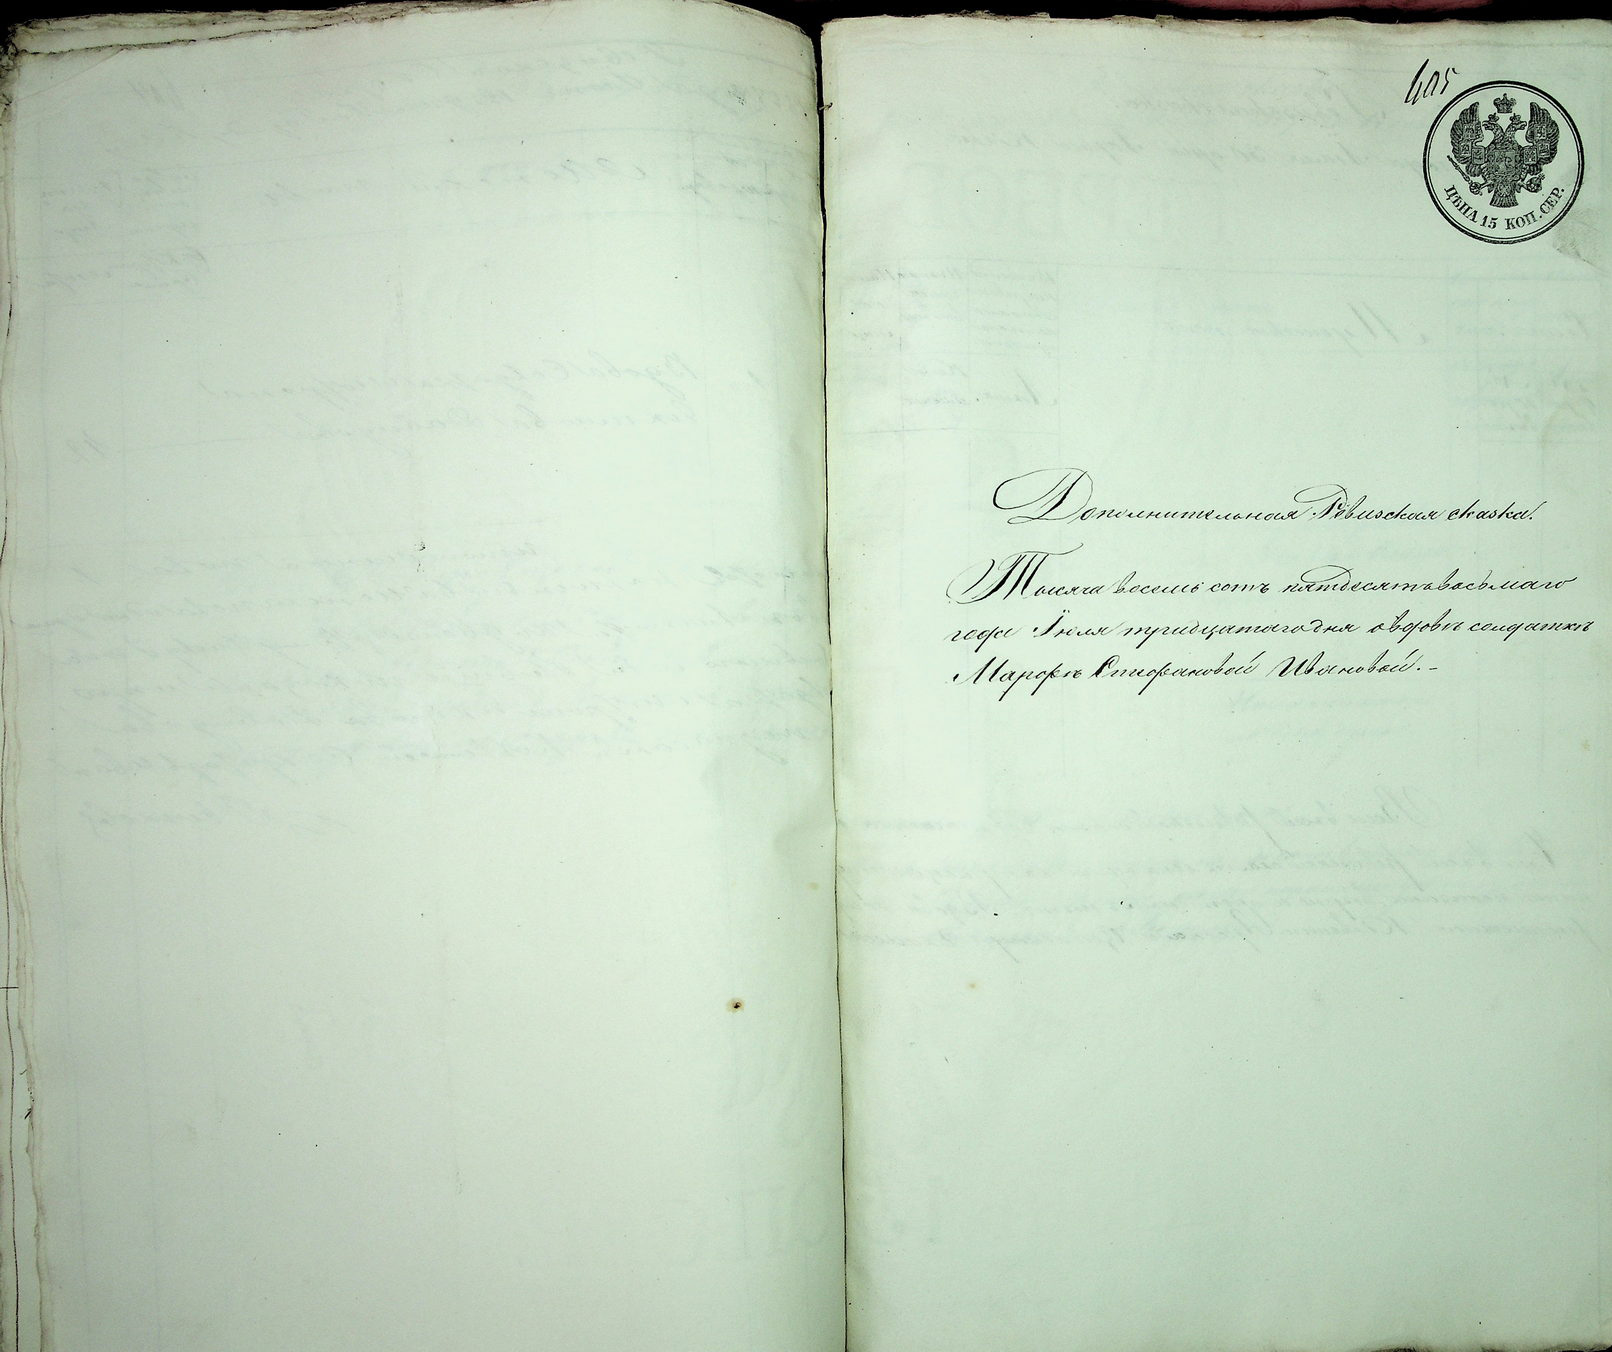 405
ЦѢНА 15 КОП. СЕР.
Дополнительная Ревизская сказка.
Тысяча восемь сотъ пятдесятъ восьмаго
года Іюля тридцатаго дня о вдовѣ солдаткѣ
Марѳѣ Стифановой Ивановой. –